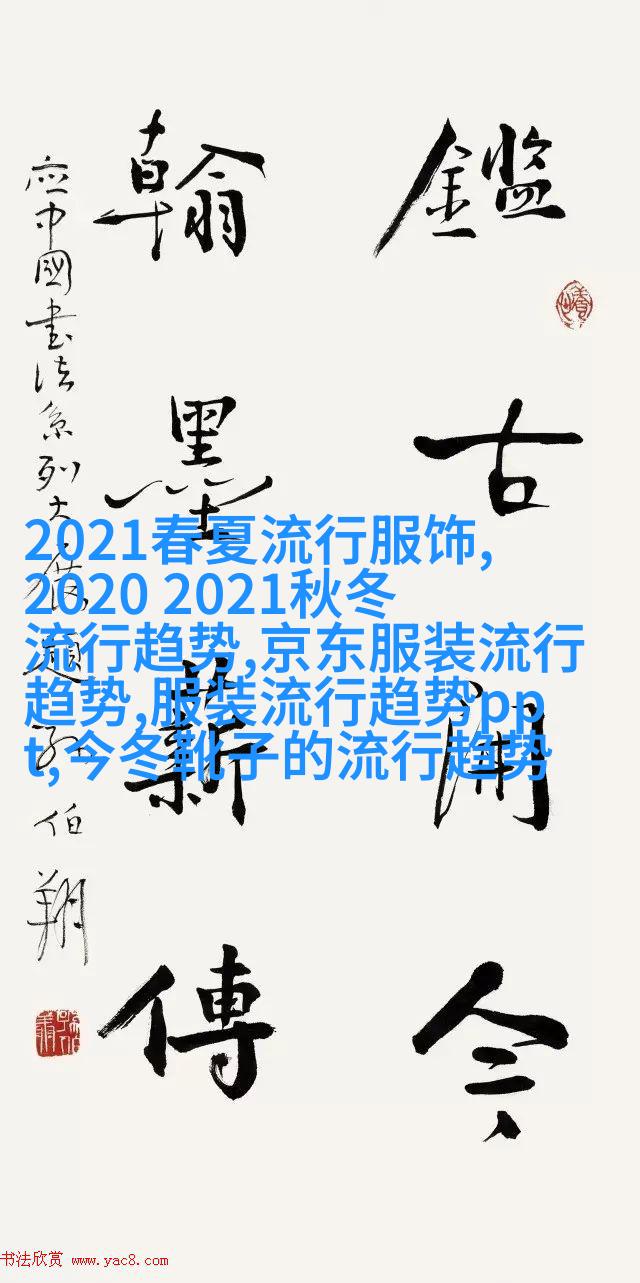 鑑古開今
翰墨薪傳
應中國書法系列大展題 孫伯翔
2021春夏流行服饰,
2020 2021秋冬
流行趋势,京东服装流行
趋势,服装流行趋势pp
t,今冬靴子的流行趋势
书法欣赏 www.yac8.com